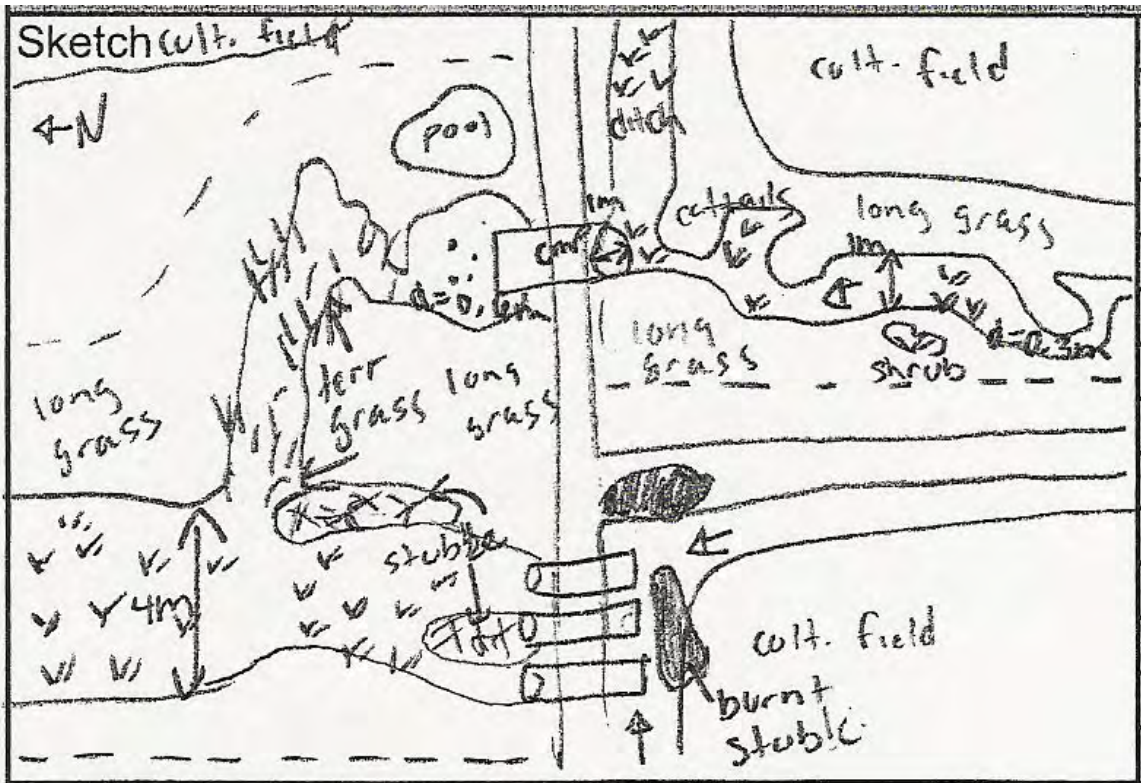 Sketch cult. field
N
pool
ditch
cult. field
1m
cmp
cattails
long grass
1m
long
grass
shrub
d=0.3m
long
grass
terr
grass
long
grass
stubble
4m
cult. field
burnt
stuble